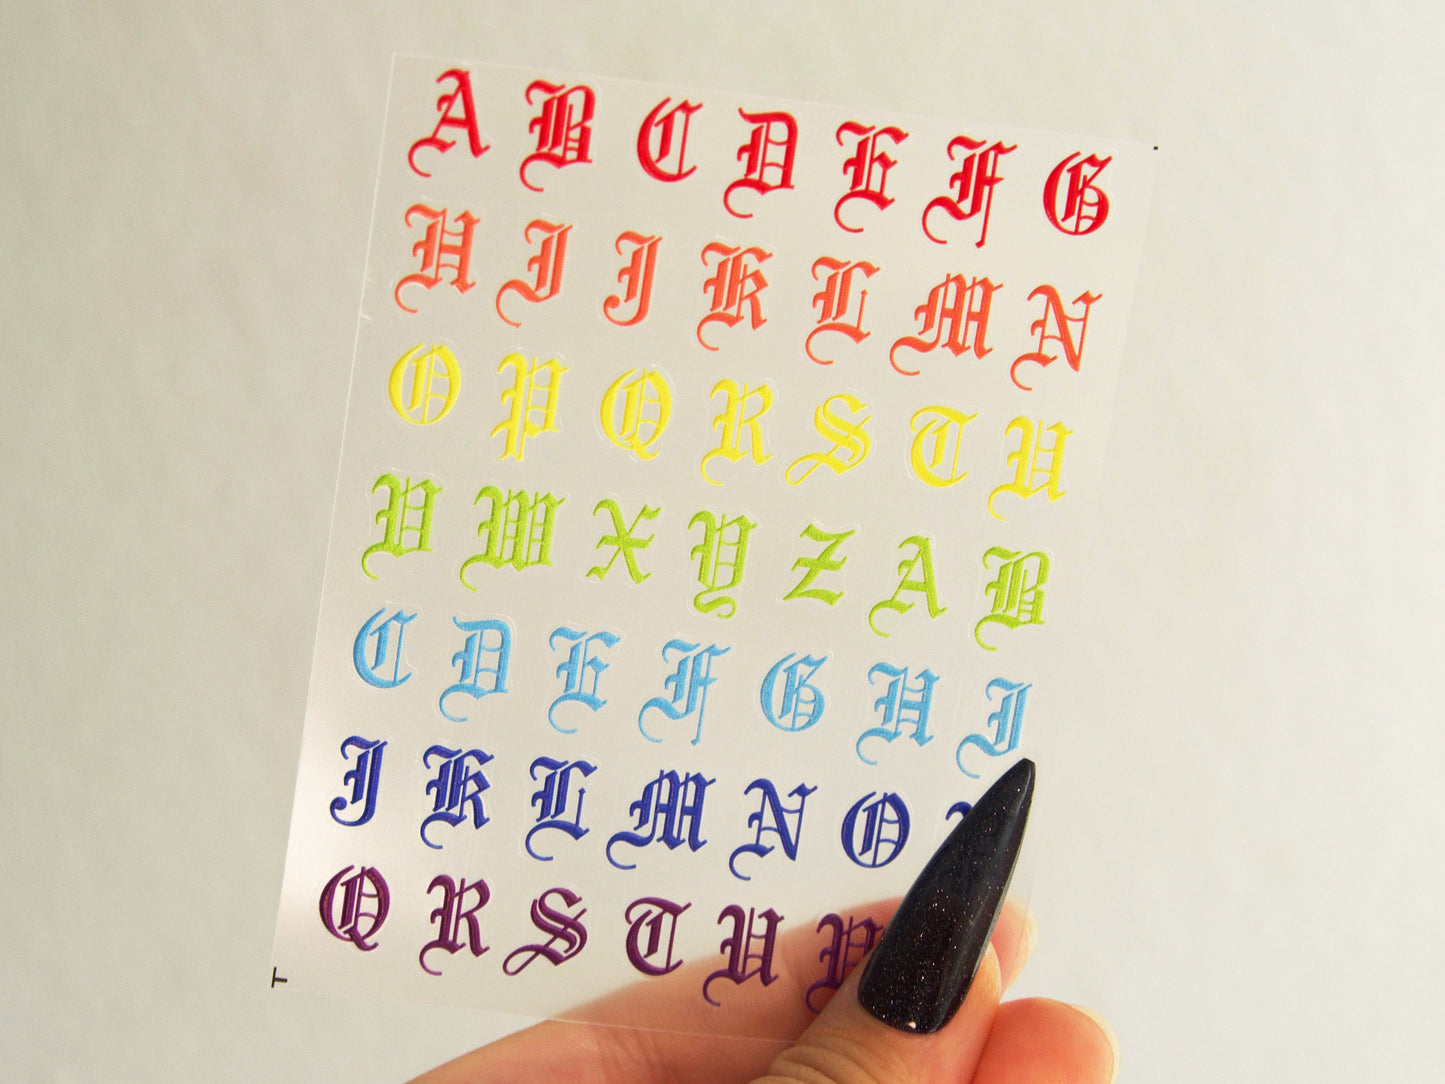 A B C D E F G
H I J K L M N
O P Q R S T U
V W X Y Z A B
C D E F G H I
J K L M N O
Q R S T U V
T